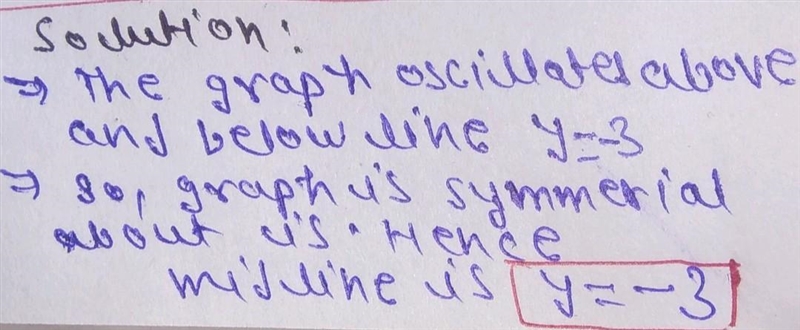 Solution:
→ The graph oscillates above
and below line y=-3
→ so, graph is symmerial
about is. Hence
midline is y=-3